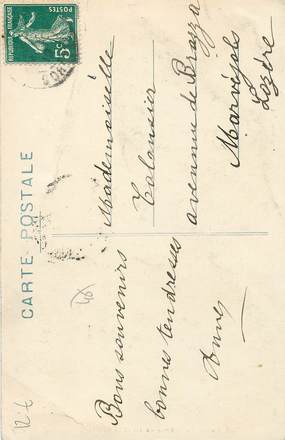 RÉPUBLIQUE FRANÇAISE
POSTES
5c
CARTE POSTALE
Mademoiselle
avenue de Brazza
Marvejols
Lozère
Bons souvenirs
bonnes tendresses